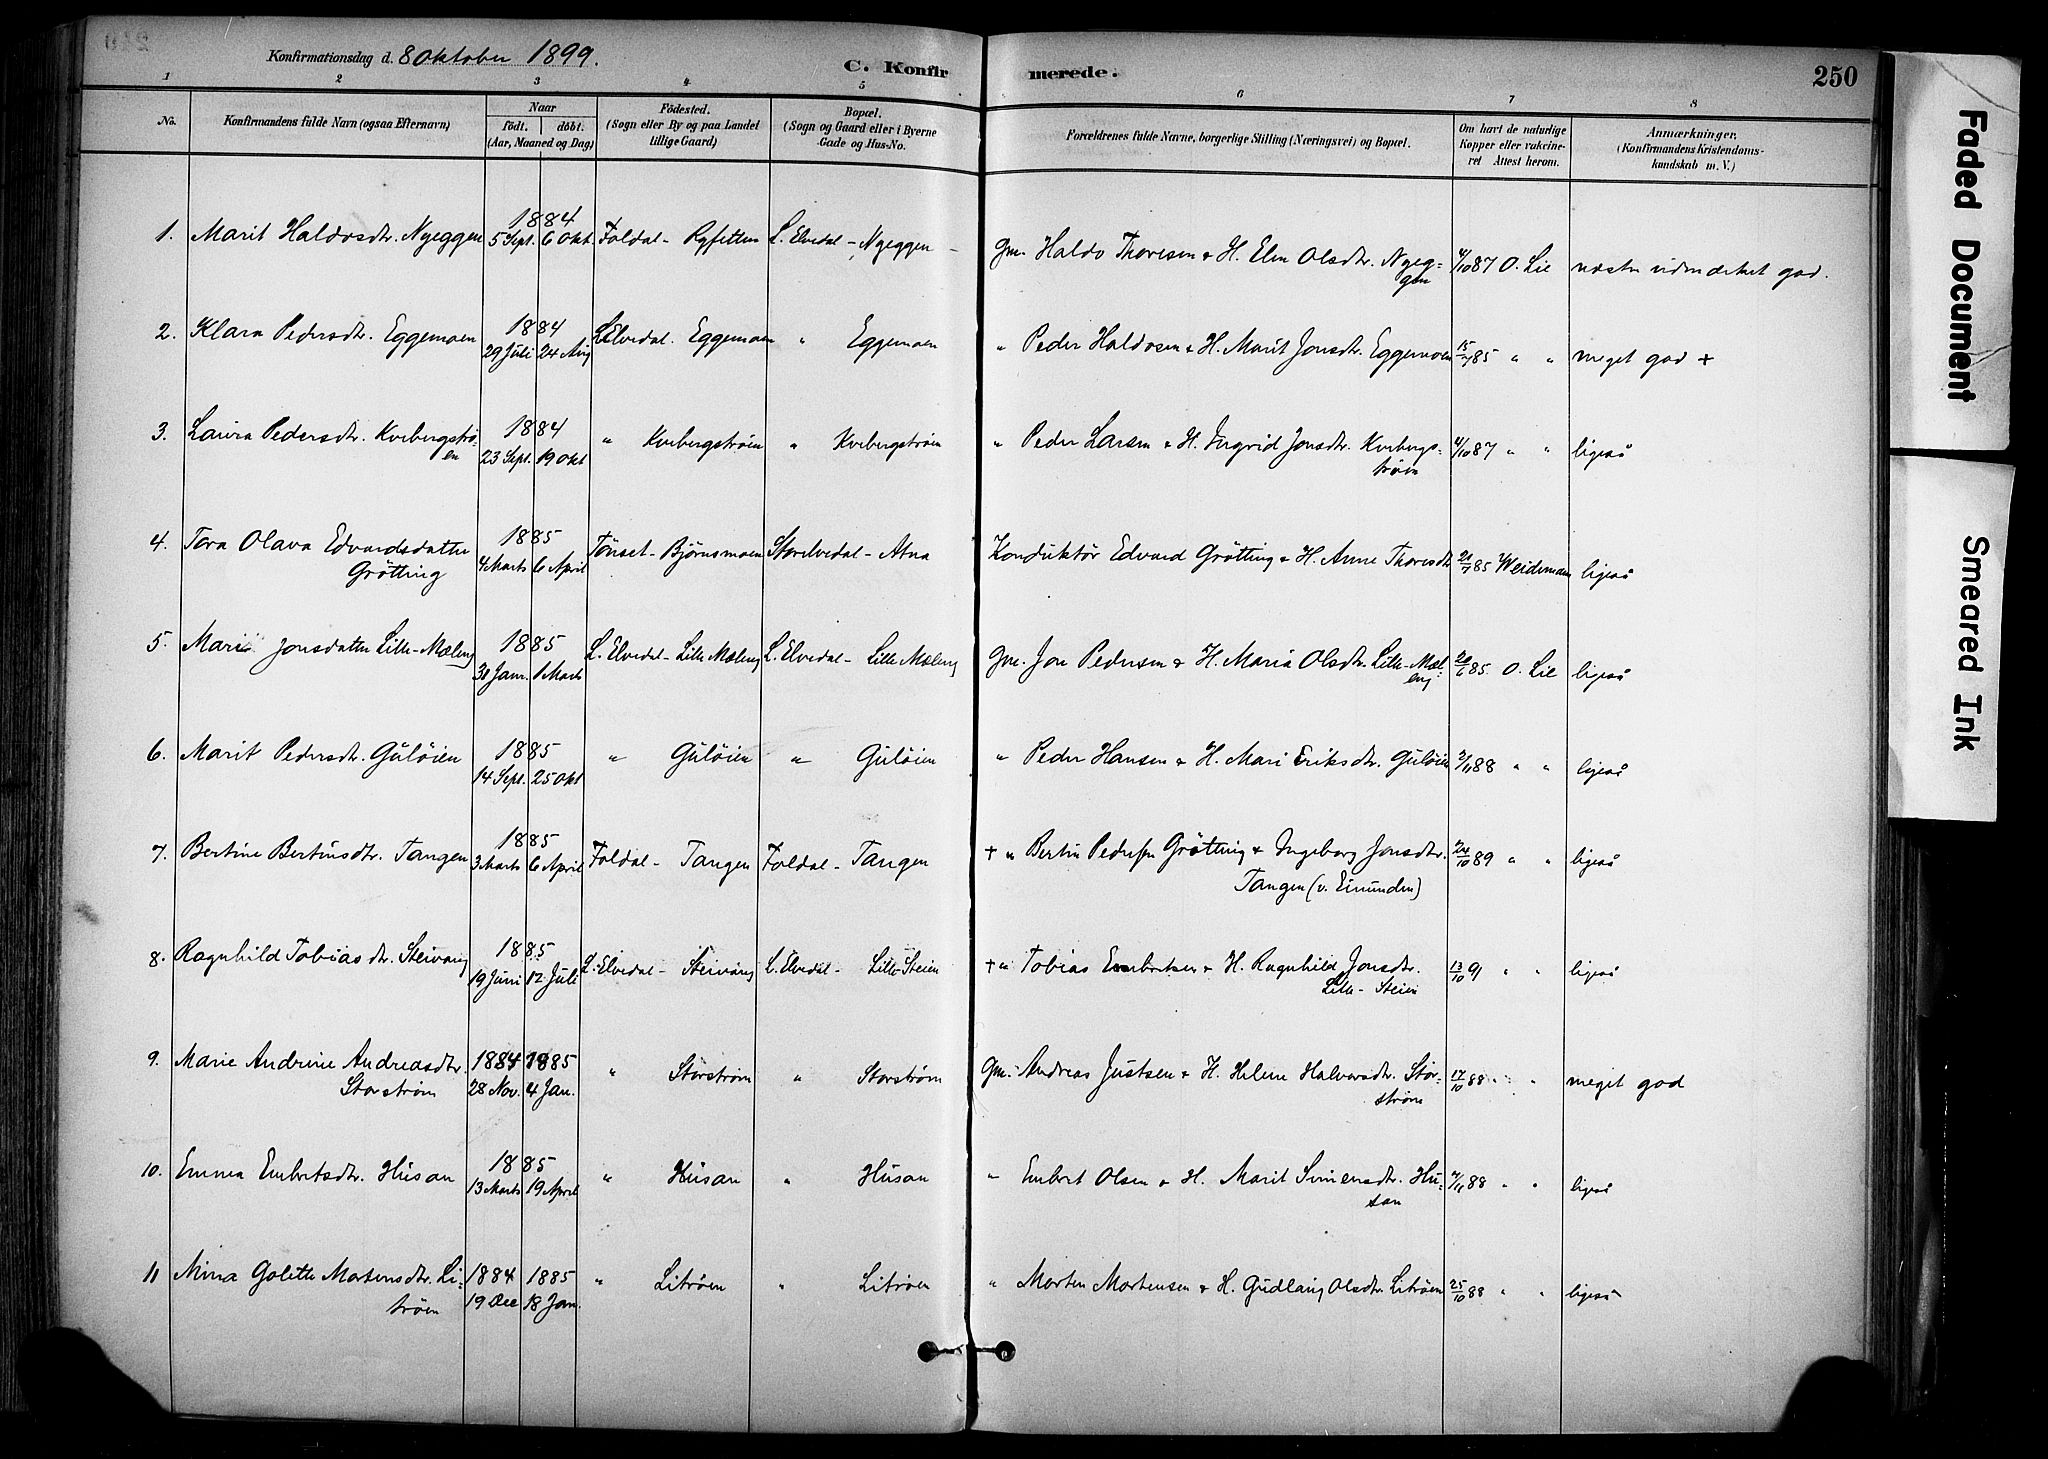 Konfirmationsdag d. 8 Oktober 1899.
C. Konfirmerede.
250
1 2 3 4 5 6 7 8
No.
Konfirmandens fulde Navn (ogsaa Efternavn)
Naar
födt. döbt.
(Aar, Maaned og Dag)
Födested.
(Sogn eller By og paa Landet
tillige Gaard)
Bopæl.
(Sogn og Gaard eller i Byerne
Gade og Hus-No.
Forældrenes fulde Navne, borgerlige Stilling (Næringsvei) og Bopæl.
Om havt de naturlige
Kopper eller vakcine-
ret Attest herom.
Anmærkninger.
(Konfirmandens Kristendoms-
kundskab m. V.)
1. Marit Haldosdtr. Nyeggen 1884 5 Sept. 6 Okt. Foldal - Ryfetten L. Elvedal - Nyeggen Gm. Haldo Thoresen & H. Elen Olsdtr. Nyeg-
gen 4/10 87 O. Lie næsten udmærket god.
2. Klara Pedersdtr. Eggemoen 1884 29 Juli 24 Aug L. Elvedal. Eggemoen " Eggemoen " Peder Haldosen & H. Marit Jonsdtr. Eggemoen 15/7 85 " " meget god +
3. Laura Pedersdtr. Kvebergstrø-
en 1884 23 Sept. 19 Okt " Kvebergstrøen " Kvebergstrøen " Peder Larsen & H. Ingrid Jonsdtr. Kvebergs-
trøen 4/10 87 " " ligeså
4. Tora Olava Edvardsdatter
Grötting 1885 4 Marts 6 April Tönset - Björnsmoen Storelvedal - Atna Konduktör Edvard Grötting & H. Anne Thoresdtr 21/7 85 Weidemann ligeså
5. Mari Jonsdatter Lille-Mæleng 1885 31 Janr. 1 Marts L. Elvedal - Lille Mæleng L. Elvedal - Lille Mæleng Gm. Jon Pedersen & H. Maria Olsdtr. Lille-Mæl-
eng 20/6 85. O. Lie ligeså
6. Marit Pedersdtr. Gulöien 1885 14 Sept. 25 Okt " Gulöien " Gulöien " Peder Hansen & H. Mari Eriksdtr. Gulöien 2/11 88 " " ligeså
7. Bertine Bertinsdtr. Tangen 1885 3 Marts 6 April Foldal - Tangen Foldal - Tangen + " Bertin Pedersen Grötting & Ingeborg Jonsdtr.
Tangen (v. Einunden) 24/10 89 " " ligeså
8. Ragnhild Tobiasdtr. Steivang 1885 19 Juni 12 Juli L. Elvedal - Steivang L. Elvedal - Lille Steien + " Tobias Embretsen & H. Ragnhild Jonsdtr.
Lille-Steien 13/10 91 " " ligeså
9. Marie Andrine Andreasdtr.
Storström 1884 1885 28 Nov. 4 Jan. " Storström " Storström Gm. Andreas Justsen & H. Helene Halvorsdtr. Stor-
ström 17/10 88 " " meget god
10. Emma Embretsdtr. Husan 1885 13 Marts 19 April " Husan " Husan " Embret Olsen & H. Marit Simensdtr. Hu-
san 7/11 88 " " ligeså
11 Mina Golette Mortensdtr. Li-
trøen 1884 1885 19 Dec 18 Jan. " Litrøen " Litrøen " Morten Mortensen & H. Gudlaug Olsdtr. Litrøen 25/10 88 " " ligeså
Faded Document
Smeared Ink